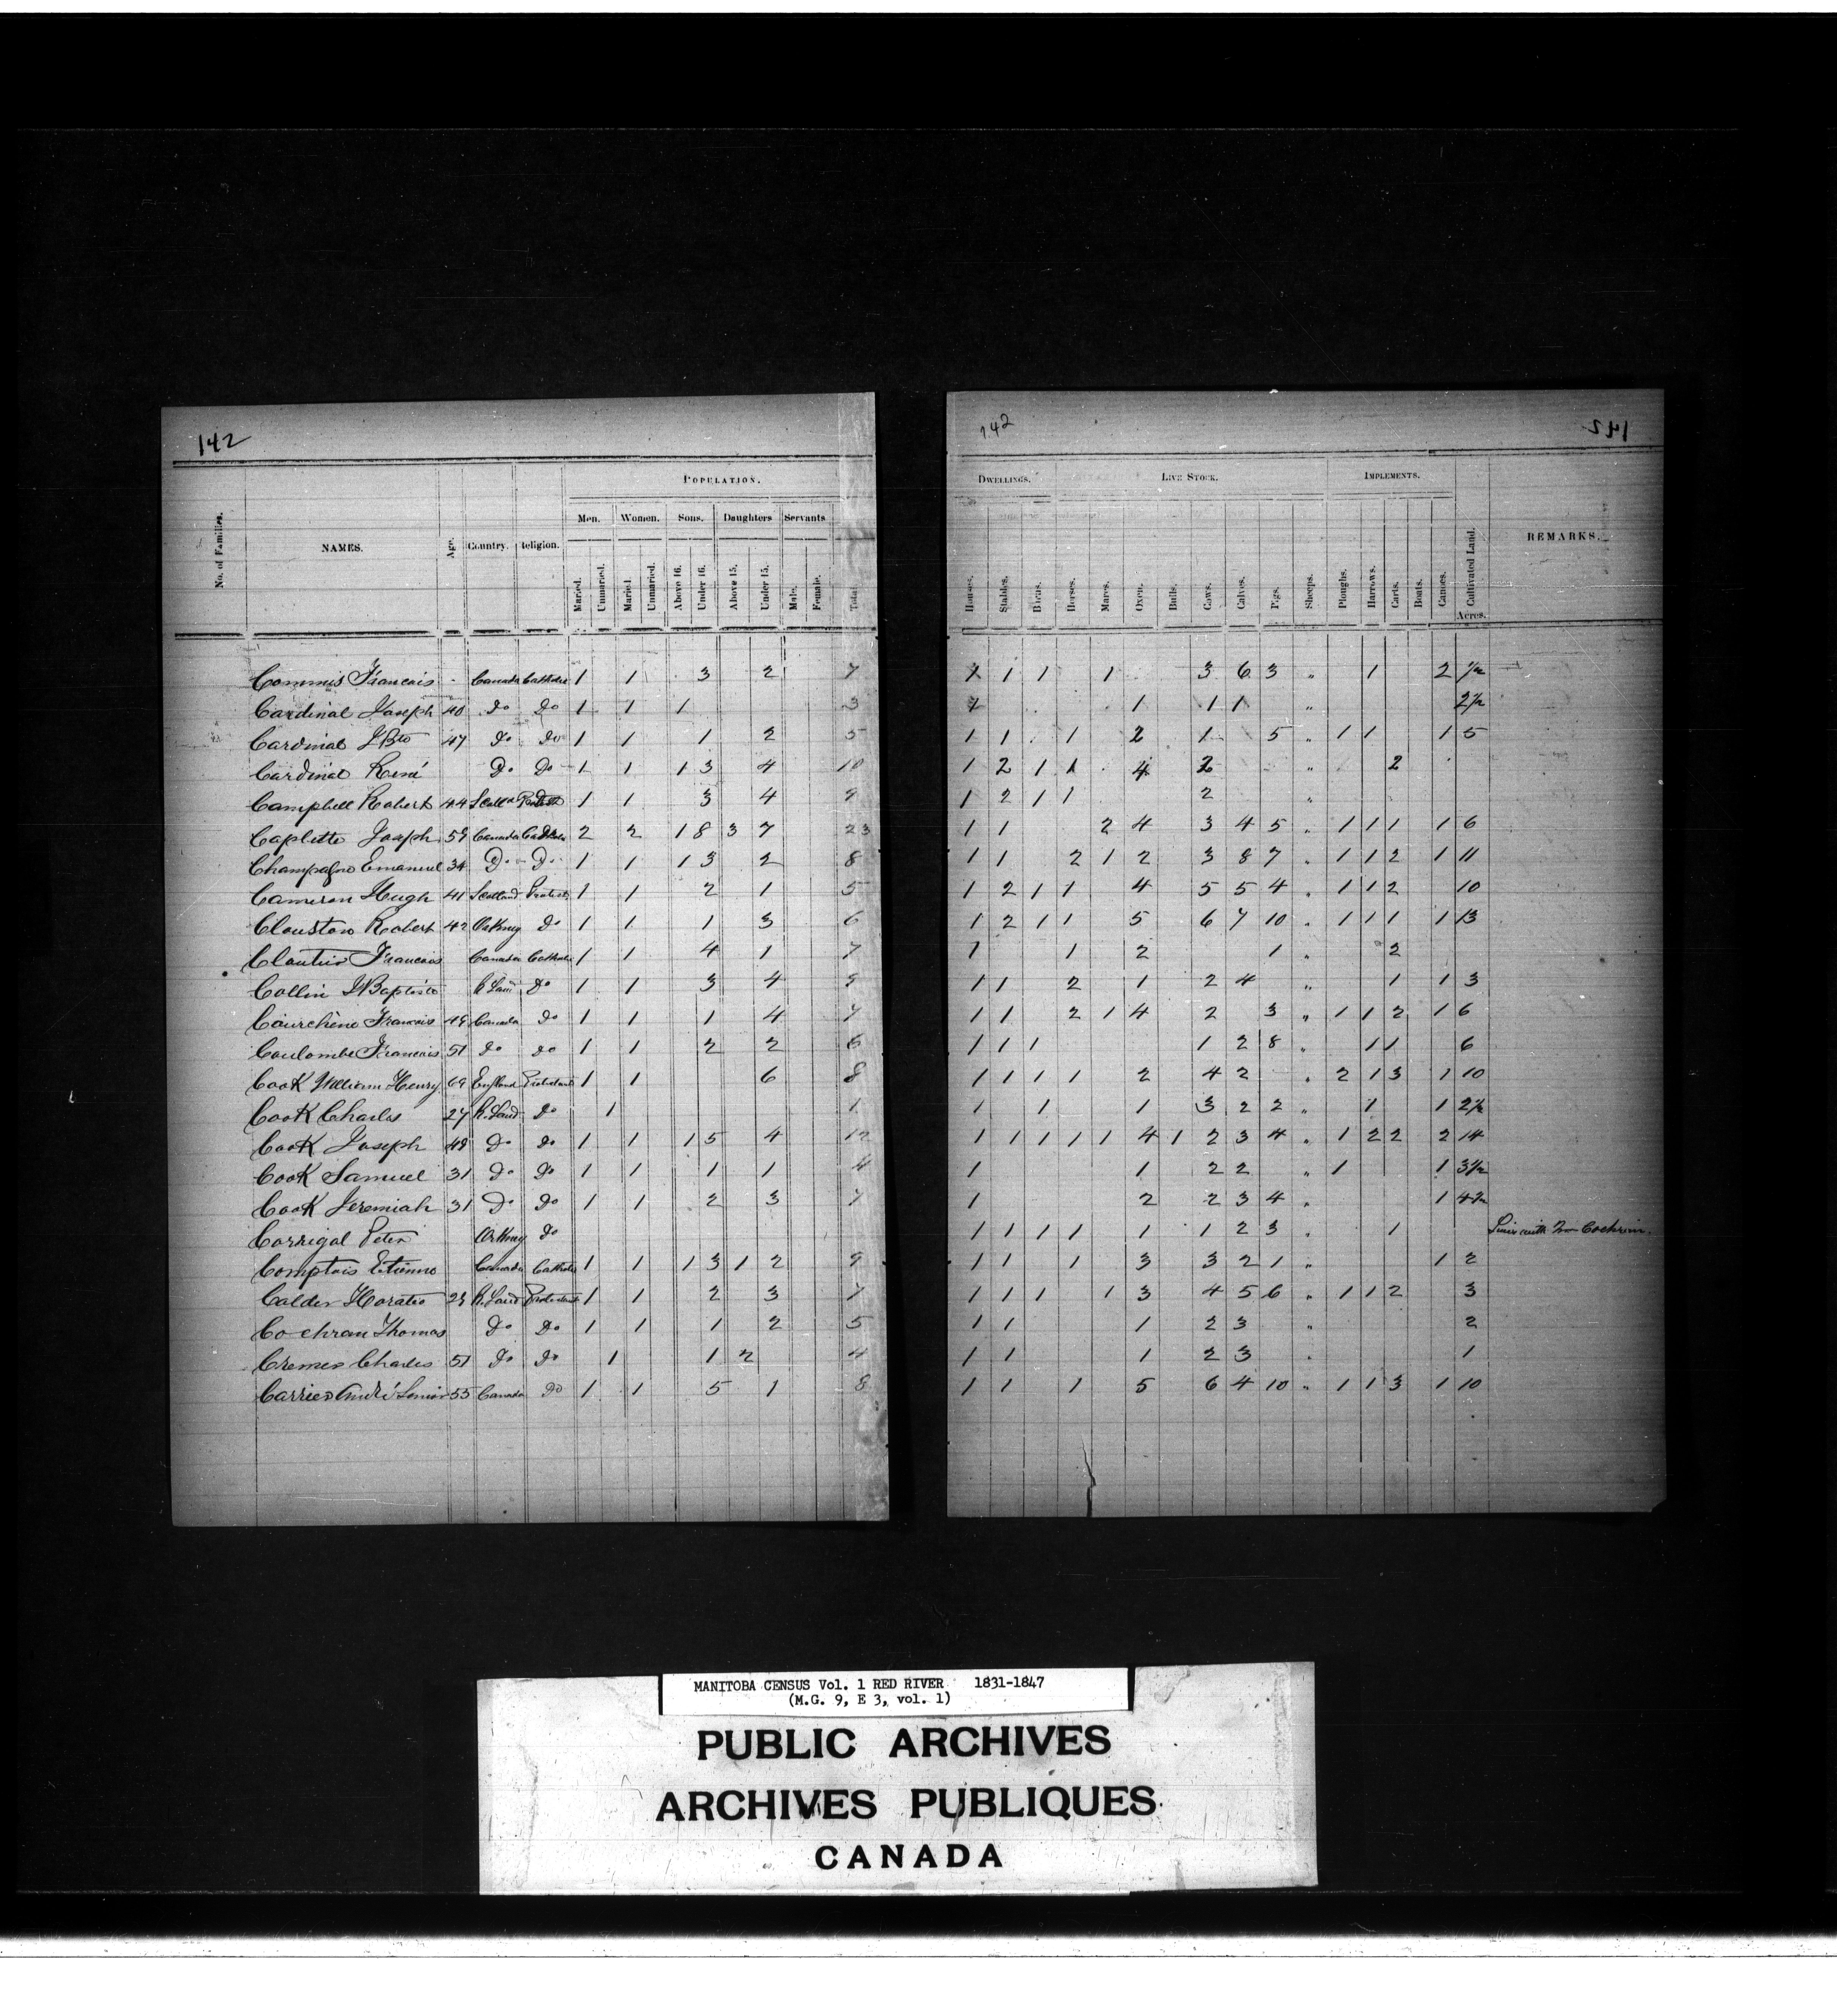 142
POPULATION.
Men. Women. Sons. Daughters Servants
No. of Families. NAMES. Age. Country. Religion. Maried. Unmaried. Maried. Unmaried. Above 16. Under 16. Above 15. Under 15. Male. Female. Total
Commis Francois Canada Catholic 1 1 3 2 7
Cardinal Joseph 40 Do Do 1 1 1 3
Cardinal JBte 47 Do Do 1 1 1 2 5
Cardinal René Do Do 1 1 1 3 4 10
Campbell Robert 44 1 1 3 4 9
Caplette Joseph 59 Canada Catholic 2 2 1 8 3 7 23
Champagne Emanuel 34 Do Do 1 1 1 3 2 8
Cameron Hugh 41 Scotland Protest 1 1 2 1 5
Clouston Robert 42 Orkney Do 1 1 1 3 6
Cloutier Francois Canada Catholic 1 1 4 1 7
Collin JBaptiste R Land Do 1 1 3 4 9
Courchène Francois 49 Canada Do 1 1 1 4 7
Coulombe Francois 51 Do Do 1 1 2 2 6
Cook William Henry 69 England Protestant 1 1 6 8
Cook Charles 27 R. Land Do 1 1
Cook Joseph 48 Do Do 1 1 1 5 4 12
Cook Samuel 31 Do Do 1 1 1 1 4
Cook Jeremiah 31 Do Do 1 1 2 3 7
Corrigal Peter Orkney Do
Comptois Etienne Canada Catholic 1 1 1 3 1 2 9
Calder Horatio 29 R. Land Protestant 1 1 2 3 7
Cochran Thomas Do Do 1 1 1 2 5
Cremer Charles 51 Do Do 1 1 2 4
Carrier André Senior 55 Canada Do 1 1 5 1 8
142 142
DWELLINGS. LIVE STOCK. IMPLEMENTS.
Houses. Stables. Barns. Horses. Mares. Oxen. Bulls. Cows. Calves. Pigs. Sheeps. Ploughs. Harrows. Carts. Boats. Canoes. Cultivated Land. REMARKS.
Acres.
1 1 1 1 3 6 3 " 1 2 1/2
1 1 1 1 " 2 1/2
1 1 1 2 1 5 " 1 1 1 5
1 2 1 1 4 2 " 2
1 2 1 1 2 "
1 1 2 4 3 4 5 " 1 1 1 1 6
1 1 2 1 2 3 8 7 " 1 1 2 1 11
1 2 1 1 4 5 5 4 " 1 1 2 10
1 2 1 1 5 6 7 10 " 1 1 1 1 13
1 1 2 1 " 2
1 1 2 1 2 4 " 1 1 3
1 1 2 1 4 2 3 " 1 1 2 1 6
1 1 1 1 2 8 " 1 1 6
1 1 1 1 2 4 2 " 2 1 3 1 10
1 1 1 3 2 2 " 1 1 2 1/2
1 1 1 1 1 4 1 2 3 4 " 1 2 2 2 14
1 1 2 2 " 1 1 3 1/2
1 2 2 3 4 " 1 4 1/2
1 1 1 1 1 1 2 3 " 1 Cochran.
1 1 1 3 3 2 1 " 1 2
1 1 1 1 3 4 5 6 " 1 1 2 3
1 1 1 2 3 " 2
1 1 1 2 3 " 1
1 1 1 5 6 4 10 " 1 1 3 1 10
MANITOBA CENSUS Vol. 1 RED RIVER 1831-1847
(M.G. 9, E 3, vol. 1)
PUBLIC ARCHIVES
ARCHIVES PUBLIQUES
CANADA